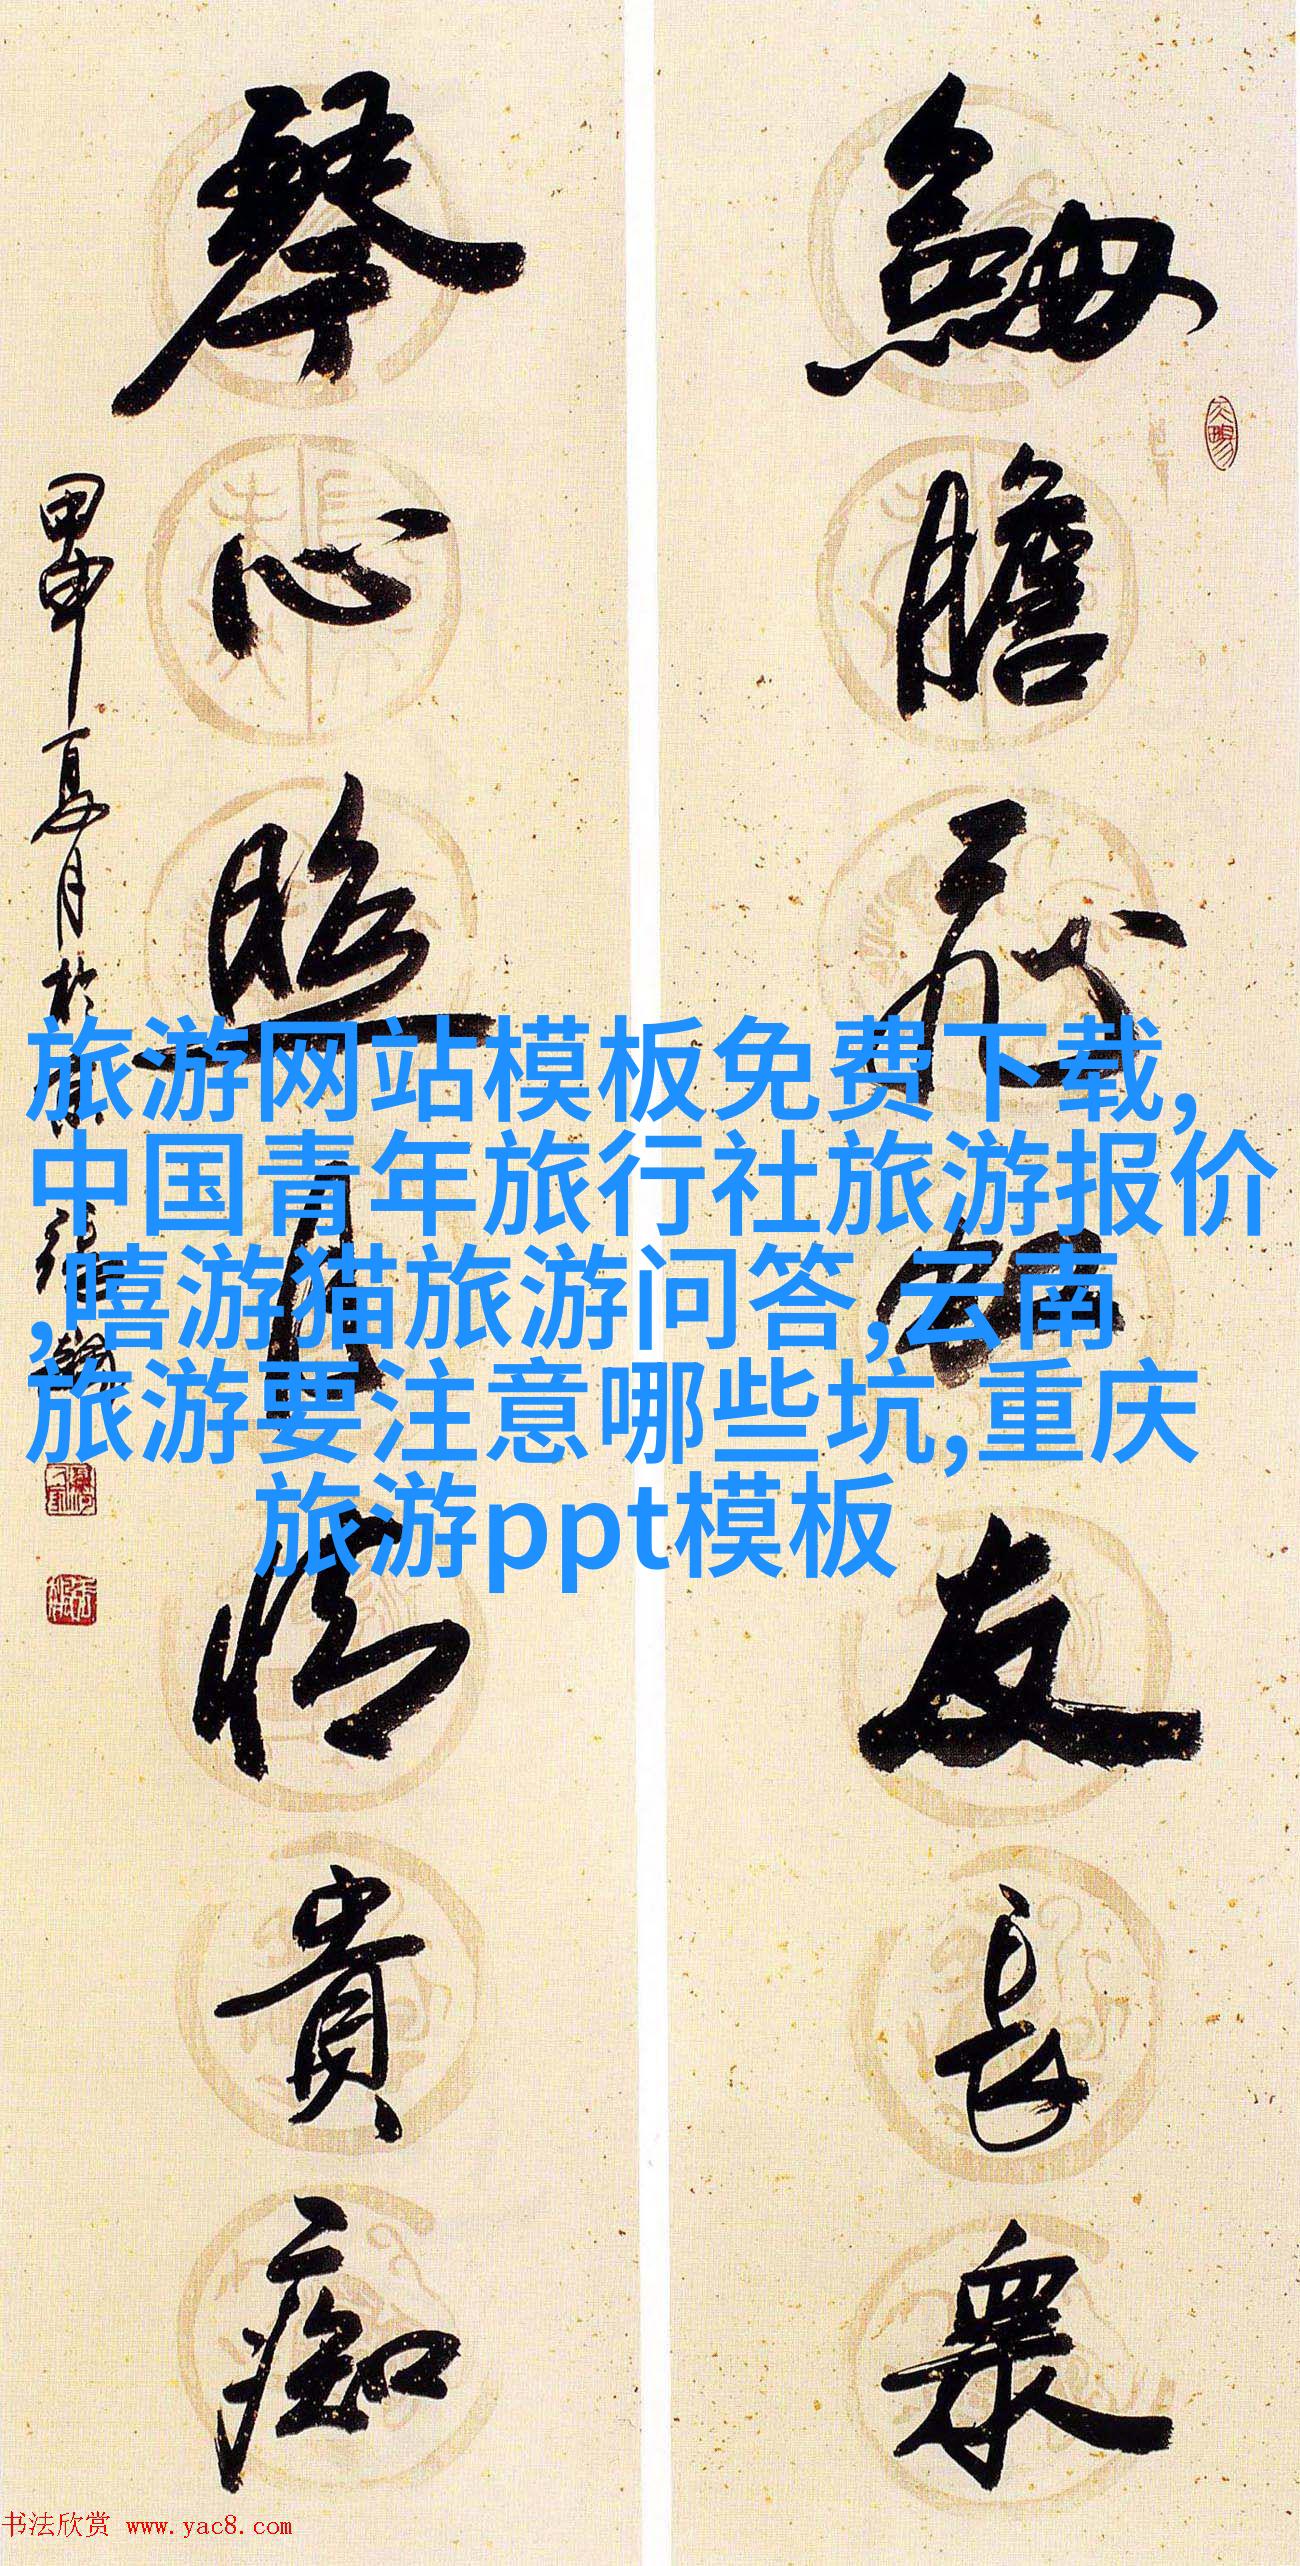 劍膽飛虹友長眾
琴心照月情貴痴
甲申夏月於
旅游网站模板免费下载,
中国青年旅行社旅游报价
,嘻游猫旅游问答,云南
旅游要注意哪些坑,重庆
旅游ppt模板
书法欣赏 www.yac8.com